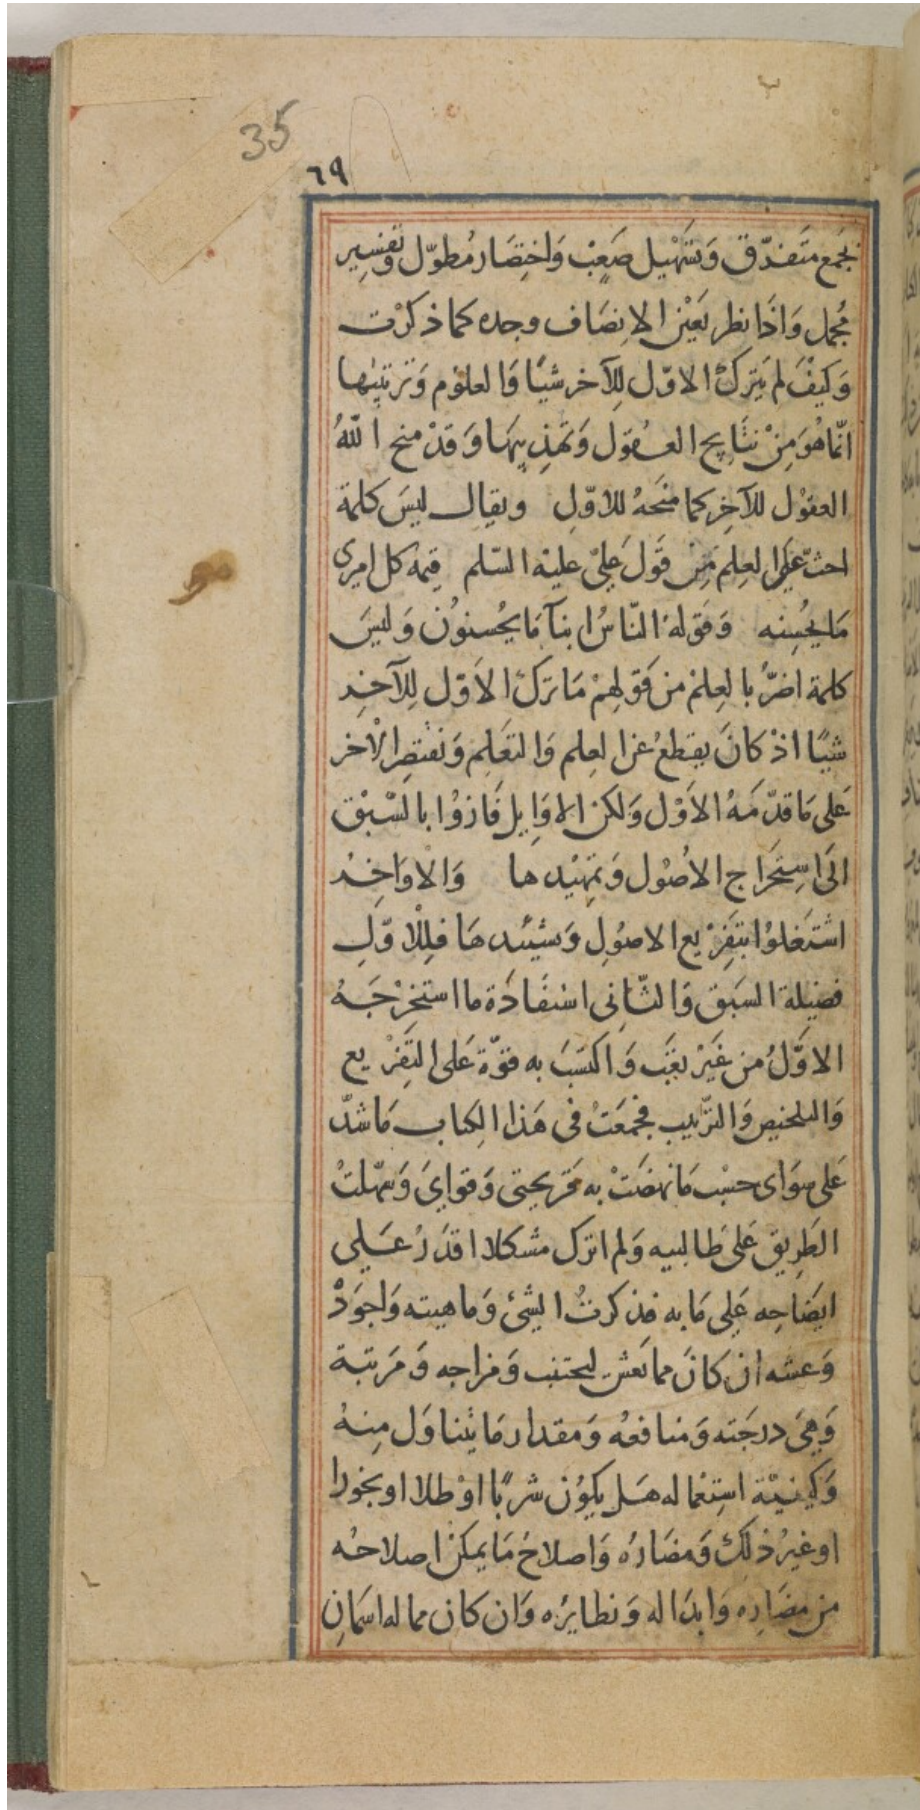 35
٦٩
بجمع متفرّق وَتسَهْيل صَعِبْ وَاختِصَار مُطوّل وتفسِير
مُجمل وَاذَا نظر بعَيْن الانصَاف وجده كما ذكرْت
وَكيفَ لم يَترك الاوّل لِلآخر شيًا وَالعلوْم وَترتيبُها
انّما هُوَ مِنْ نتَايج العُقول وَتهَذِيبهَا وَقدْ منح اللّهُ
العقوْل للآخِر كما منَحَهُ للاوّل ويقال ليسَ كلمة
احثّ عَلَى العِلم مِن قَول عَليّ عليْه السّلم قيمة كل امرى
مَا يحُسِنه وَقوله النّاسُ ابنآ مَا يحُسنوُن وَليسَ
كلمة اضرُّ بالعِلمْ من قَولهِمْ مَا ترك الاَوّل لِلآخِر
شيًا اذْ كانَ يقطعُ عن العِلم وَالتعَلم وَيقتصِر الآخر
عَلى مَا قدّمَهُ الاَوّل وَلكن الاوَايل فَازوُا بالسّبْق
الَى اسِتخَراج الاصُول وَتمهِيْدها وَالاوَاخِر
اشتَغلوُا بتَفِرْيع الاصوُل وَتشيْيدهَا فلِلْاوّل
فضيلة السَبق وَالثّانى استفَادَة ما استخرْجَهُ
الاوَّلُ من غَيْر تعَب وَاكتسَبَ به قوّة عَلى التفِرْيع
وَالتلخيص وَالترّتيب فجمَعَتْ فى هَذا الكِتاب مَا شذّ
عَلى سوَاى حسْب مَا نهضَتْ به قريحتى وَقواىَ وَسَهّلتُ
الطَرِيق عَلى طَالبيه وَلم اترك مشكلا اقدَرُ عَلى
ايضَاحِه عَلى مَا به فذكرتُ الشئ وَماهيته وَاجوَدْ
وَغشه ان كانَ مما يَغش ليجتنب وَمزاجه وَمَرتبة
وَهىَ درجَته وَمنافعهُ وَمقدار مَا يتناوَل مِنهُ
وَكيفيْة استِعْماله هَل يكوُن شربًا اوْطلا او بخورا
او غيرُ ذلك وَمضَارُه وَاصلاحَ مَا يمكنْ اصلاحهُ
من مضَارِه وَابدَاله وَنظايرُه وَان كان مما له اسمَان